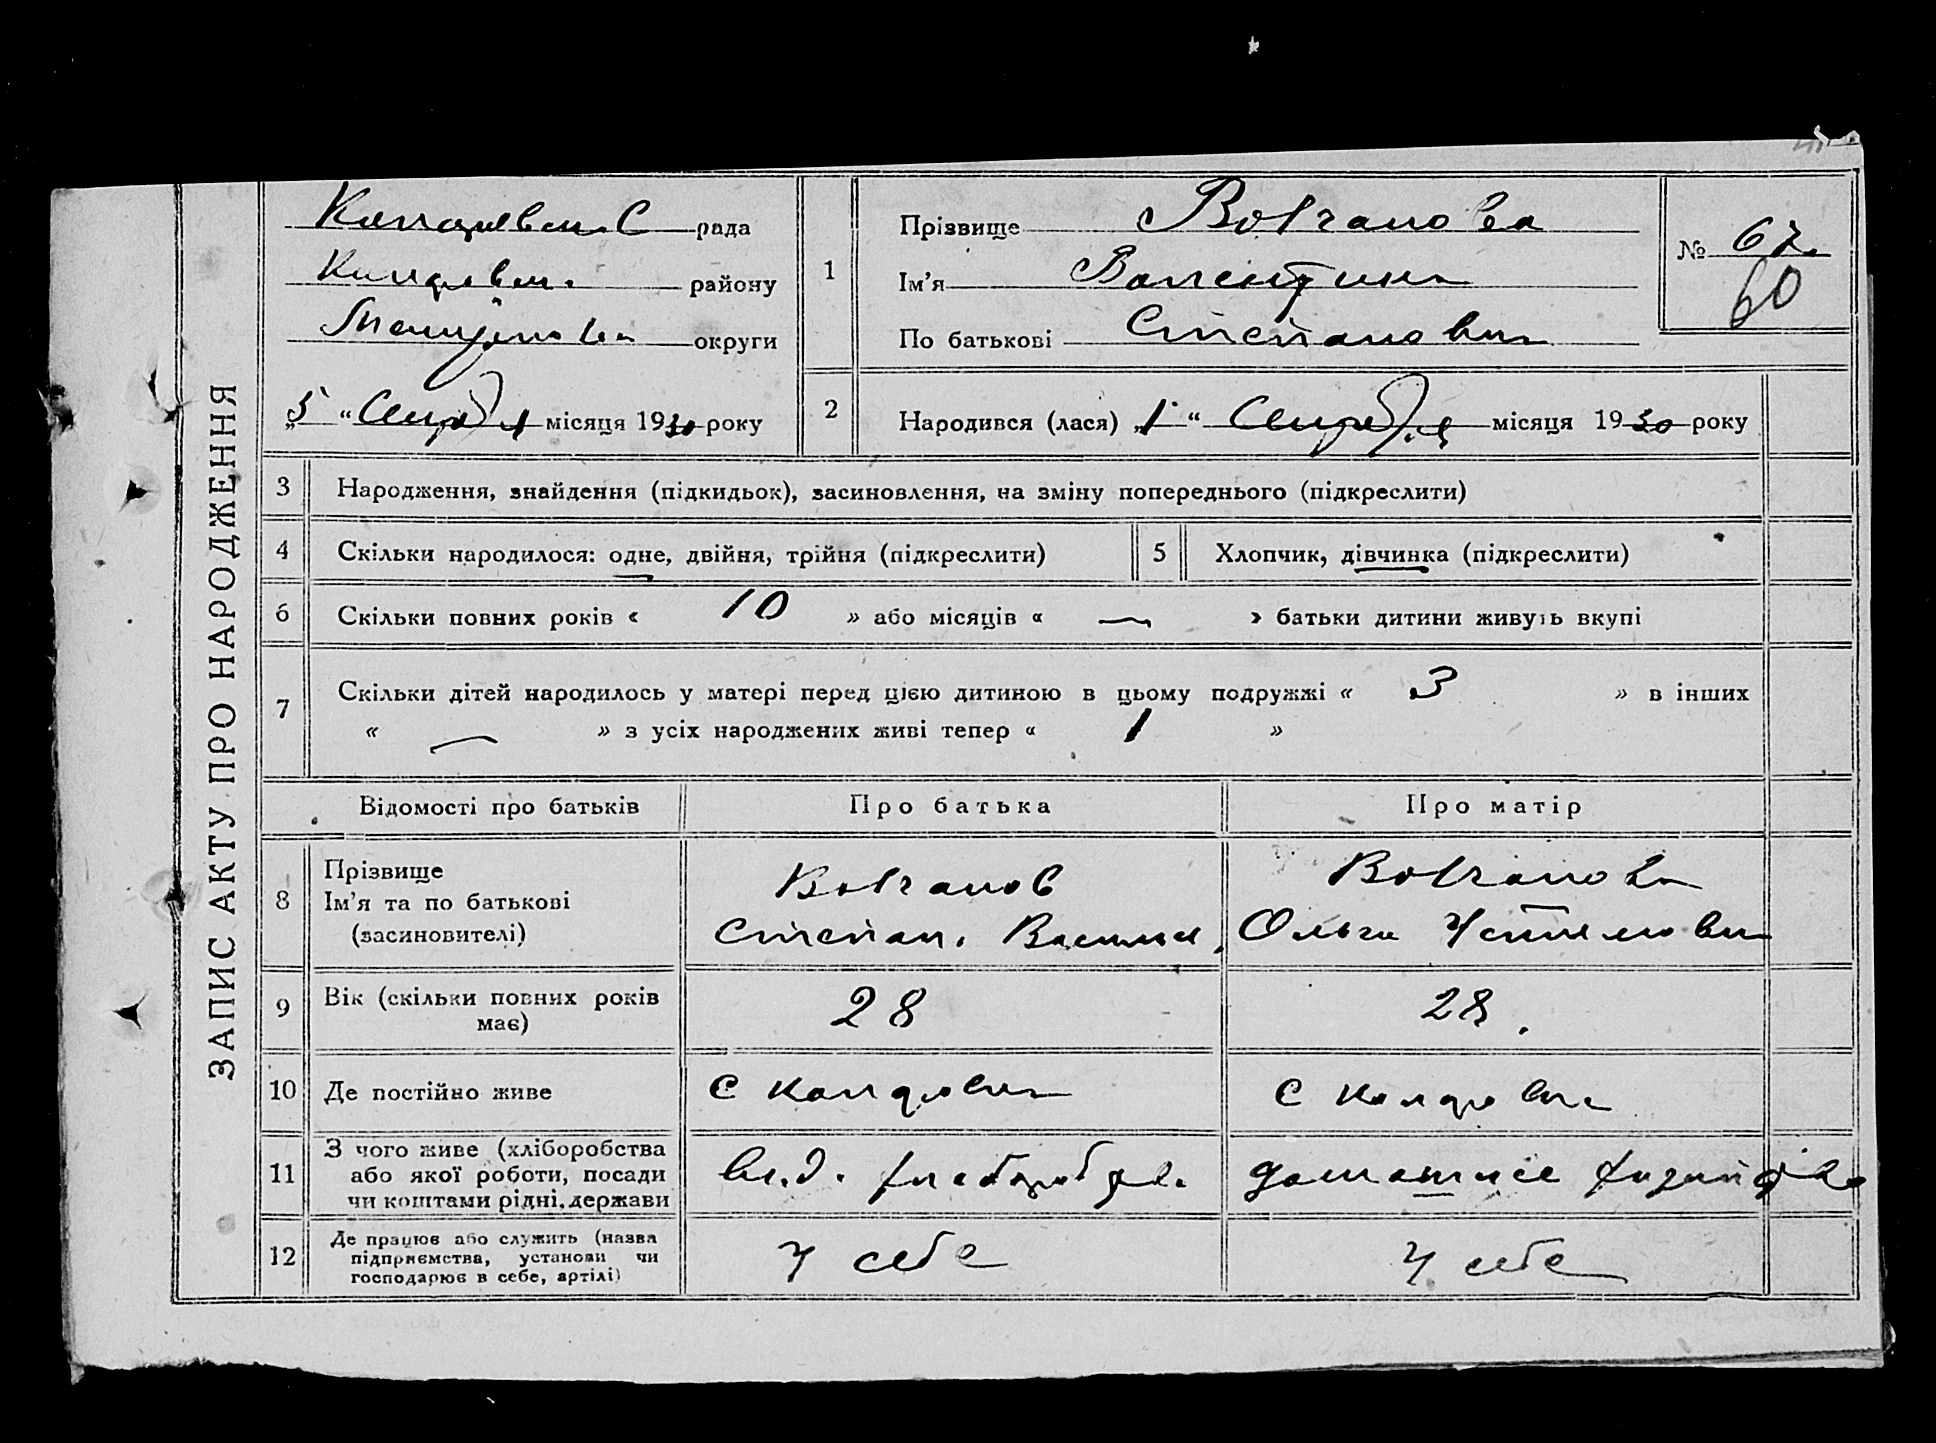 ЗАПИС АКТУ ПРО НАРОДЖЕННЯ
рада
району
округи
„5“ місяця 1930 року
1 Прізвище Вовчанова
Ім'я Валентина
По батькові Степановна
№ 67.
60
2 Народився (лася) „1“ Сентября місяця 1930 року
3 Народження, знайдення (підкидьок), засиновлення, на зміну попереднього (підкреслити)
4 Скільки народилося: одне, двійня, трійня (підкреслити) 5 Хлопчик, дівчинка (підкреслити)
6 Скільки повних років « 10 » або місяців « — » батьки дитини живуть вкупі
7 Скільки дітей народилось у матері перед цією дитиною в цьому подружжі « 3 » в інших
« — » з усіх народжених живі тепер « 1 »
Відомості про батьків Про батька Про матір
8 Прізвище Ім'я та по батькові (засиновителі)
Вовчанов Степан. Васильев.
Вовчанова Ольга
9 Вік (скільки повних років має) 28 28.
10 Де постійно живе с с
11 З чого живе (хліборобства або якої роботи, посади чи коштами рідні, держави
домашнее
12 Де працює або служить (назва підприємства, установи чи господарює в себе, артілі) У себе У себе